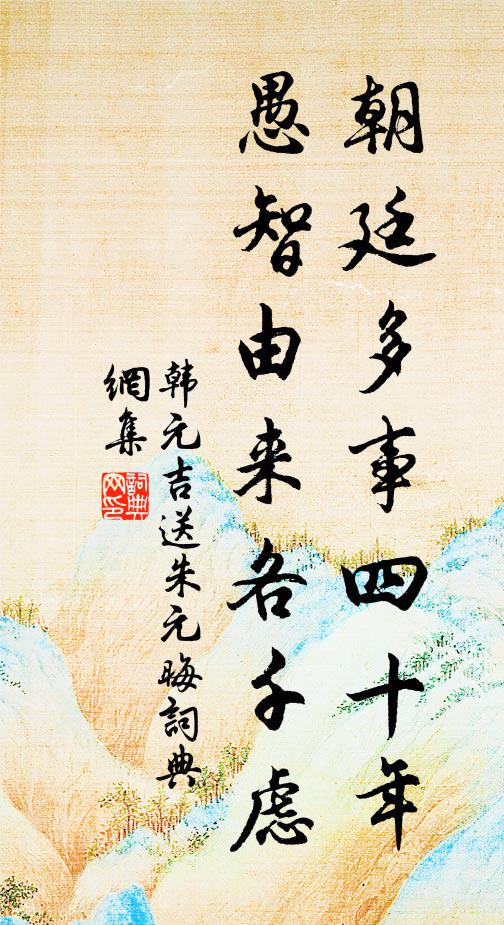 朝廷多事四十年
愚智由来各千虑
韩元吉送朱元晦詞典
網集
詞典
网印